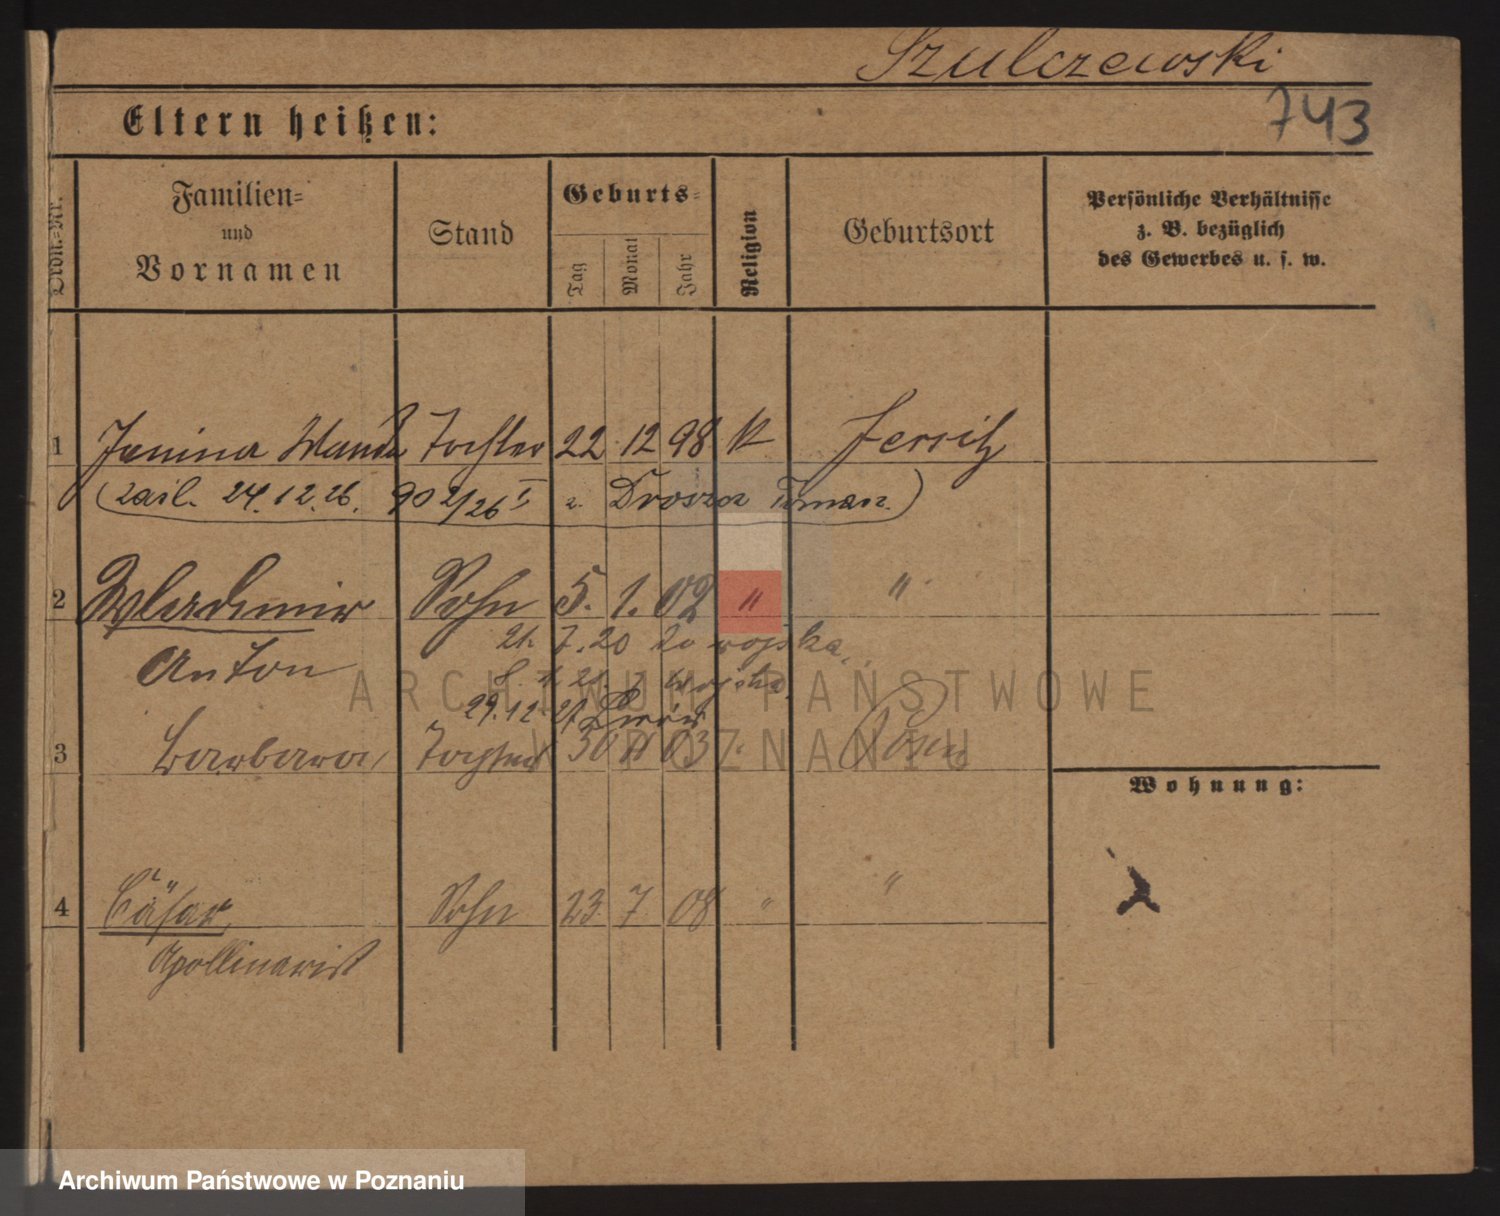 Szulczewski
743
Eltern heißen:
Ordn.-Nr.
Familien-
und
Vornamen
Stand
Geburts-
Tag
Monat
Jahr
Religion
Geburtsort
Persönliche Verhältnisse
z. B. bezüglich
des Gewerbes u. s. w.
1 Janina Wanda Tochter 22 12 98 K Jersitz
(zaśl. 24.12.26. 902/26 I z. Drozda Roman)
2 Wladimir Sohn 5. 1. 02 " "
21. 7. 20 do wojska
Anton
z wojska
29.12.21 Lwów
3 Barbara Tochter 30 11 03 " Posen
Wohnung:
4 Cäsar Sohn 23 7 08 " "
Apollinaris
ARCHIWUM PAŃSTWOWE
W POZNANIU
Archiwum Państwowe w Poznaniu